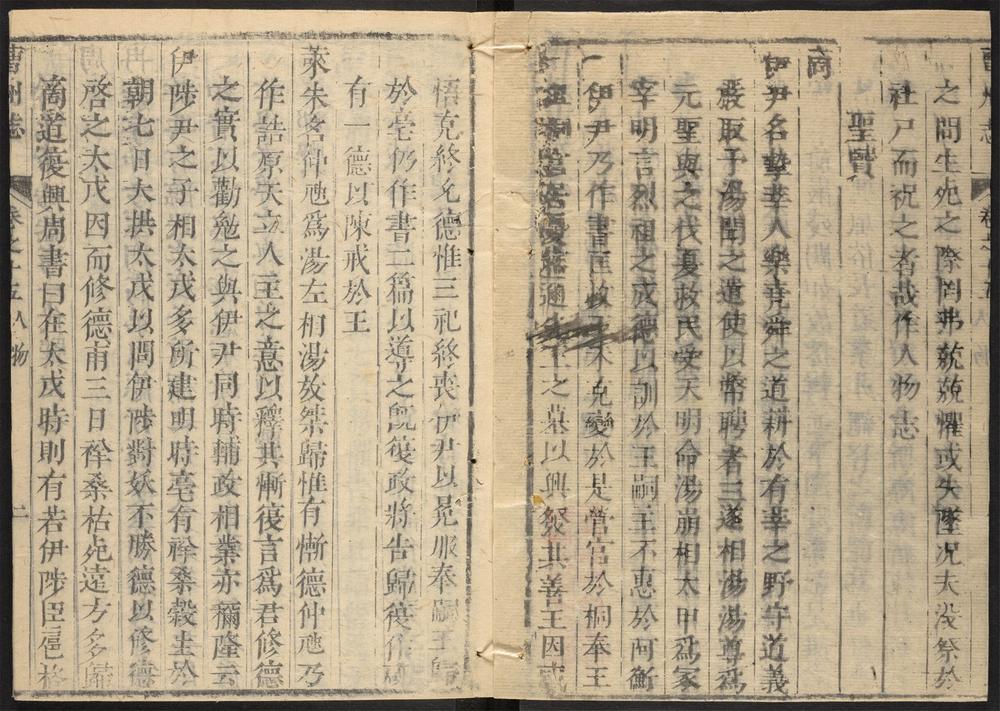 之問生死之際罔弗兢兢懼或失墜况夫没祭於
社尸而祝之者哉作人物志
聖贊
商
伊尹名摯莘人樂堯舜之道耕於有莘之野守道義
嚴取予湯聞之遣使以幣聘者三遂相湯湯尊爲
元聖與之伐夏救民受天明命湯崩相太甲爲冢
宰明言烈祖之成德以訓於王嗣王不惠於阿衡
伊尹乃作書 克變於是營宫於桐奉王
之墓以興 其善王因
悟克終允德惟三祀終喪伊尹以冕服奉嗣王歸
於亳仍作書三篇以導之旣復政將告歸復作
有一德以陳戒於王
萊朱名仲虺爲湯左相湯放桀歸惟有慚德仲虺乃
作誥原天立人主之意以釋其慚復言爲君修德
之實以勸勉之與伊尹同時輔政相業亦彌隆云
伊陟尹之子相太戊多所建明時亳有祥桑穀生於
朝七日大拱太戊以問伊陟對妖不勝德以修德
啓之太戊因而修德甫三日祥桑枯死遠方多歸
啇道復興周書曰在太戊時則有若伊陟臣扈格
曹州志 卷之十五 人物 二